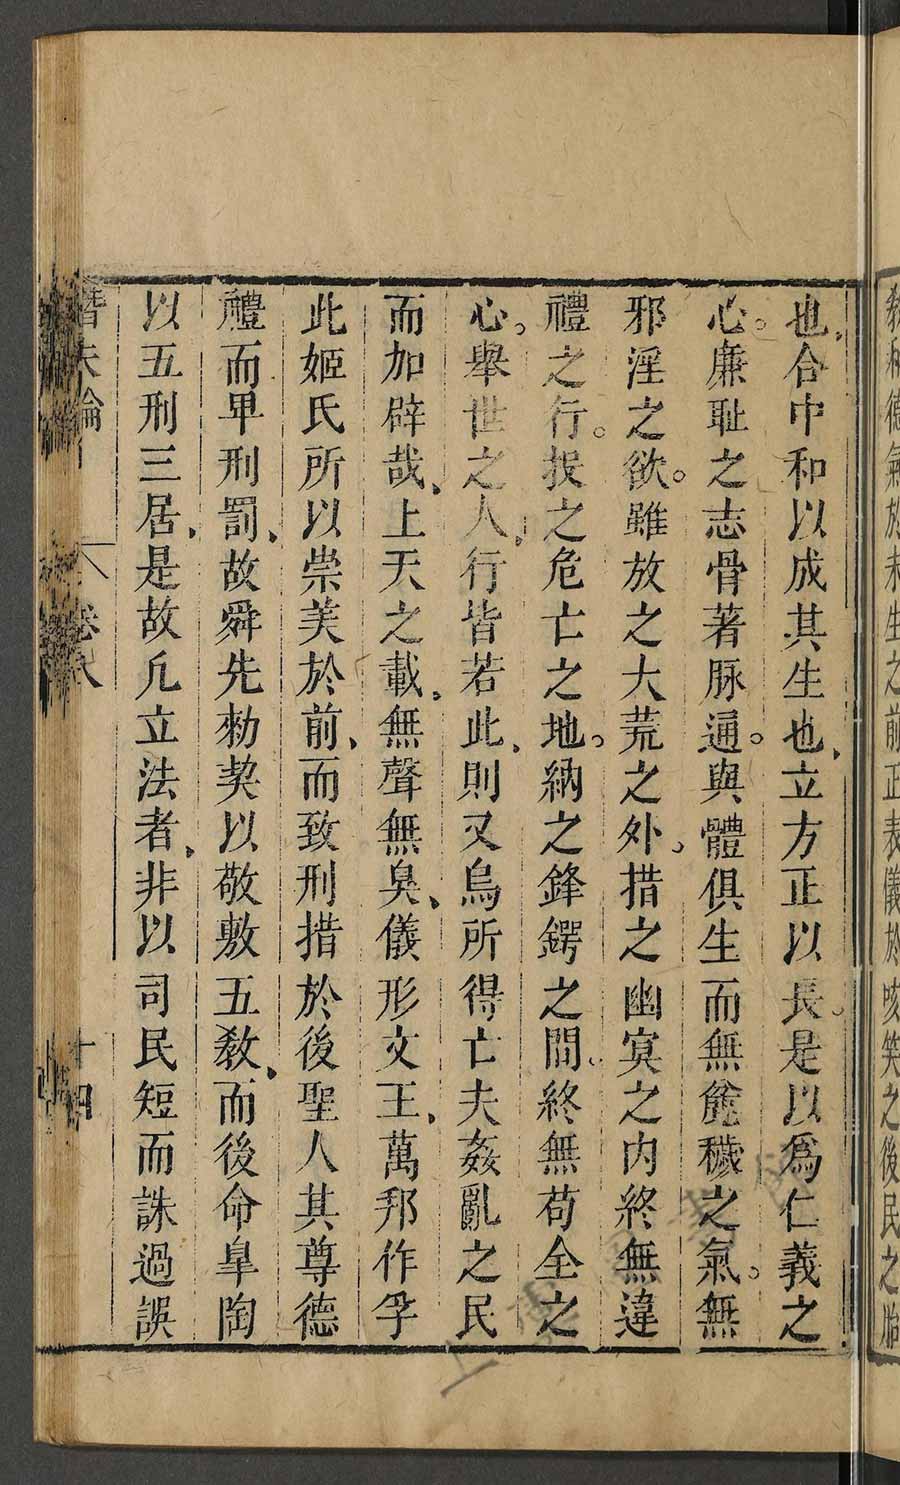 敎和德氣於未生之前正表儀於咳笑之後民之胎
也合中和以成其生也立方正以長是以爲仁義之
心廉耻之志骨著脉通與體俱生而無麄穢之氣無
邪淫之欲雖放之大荒之外措之幽冥之内終無違
禮之行投之危亡之地納之鋒鍔之間終無苟全之
心舉世之人行皆若此則又烏所得亡夫姦亂之民
而加辟哉上天之載無聲無臭儀形文王萬邦作孚
此姬氏所以崇美於前而致刑措於後聖人其尊德
禮而卑刑罰故舜先勑契以敬敷五敎而後命臯陶
以五刑三居是故凢立法者非以司民短而誅過誤
潛夫論 卷八 十四